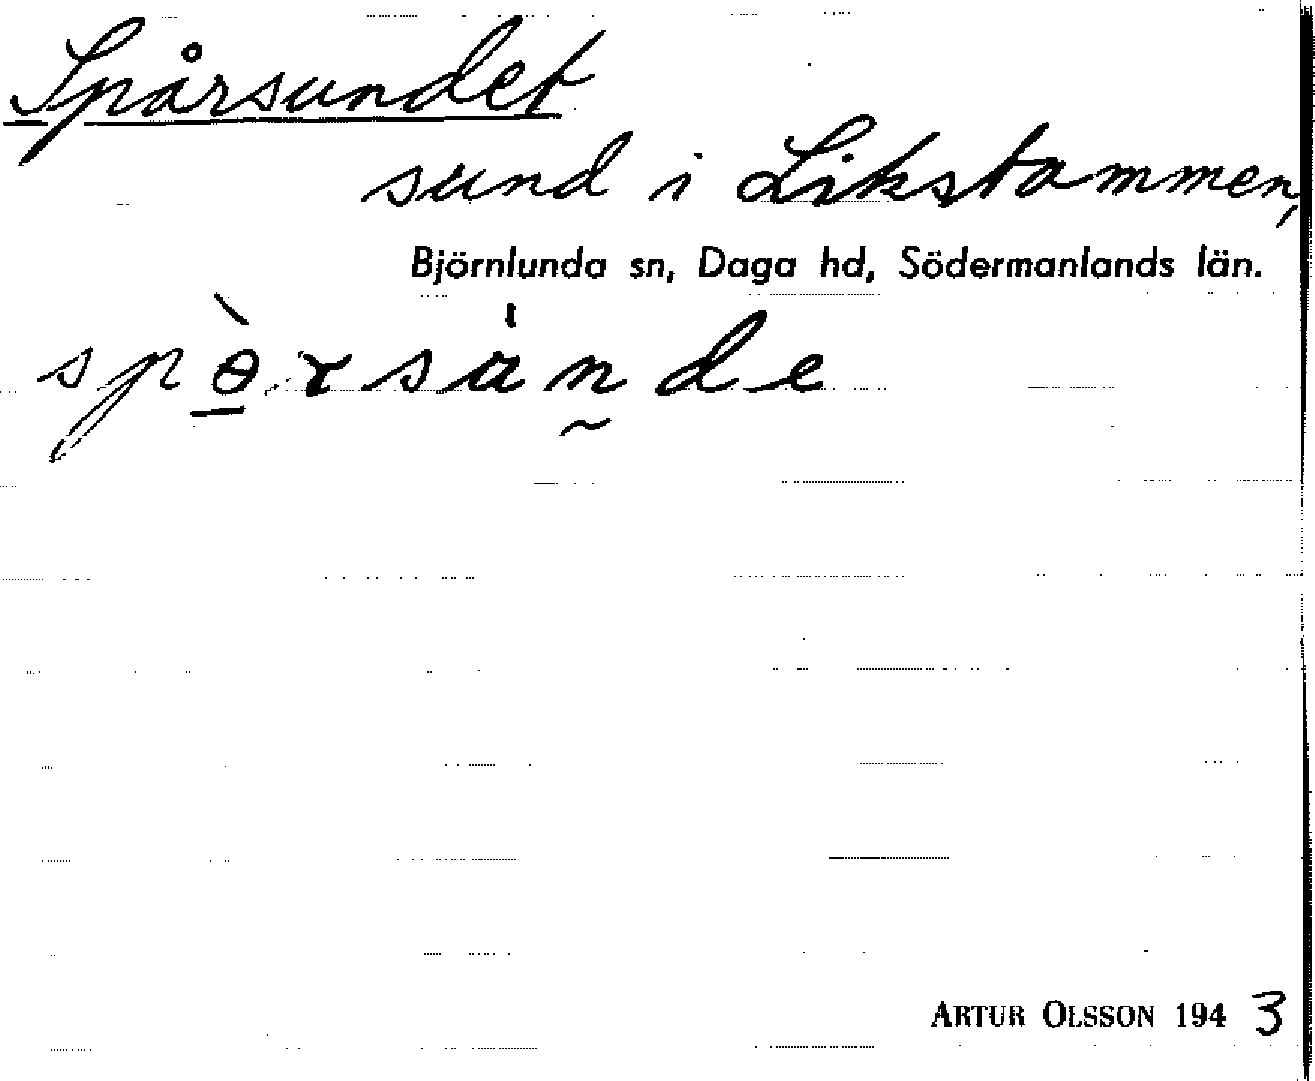 Spårsundet
sund i Likstammen,
Björnlunda sn, Daga hd, Södermanlands län.
ARTUR OLSSON 1943